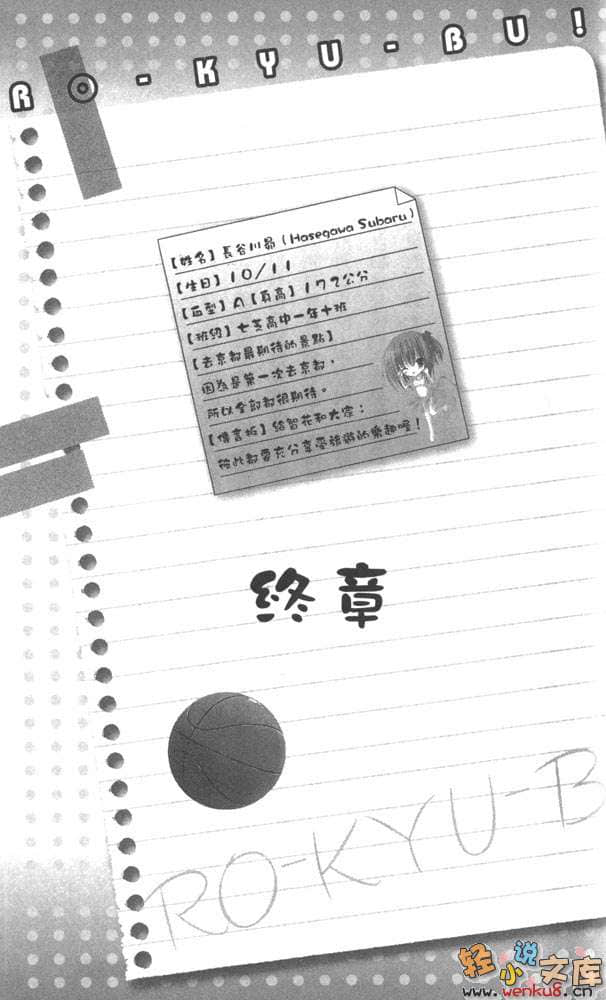 RO-KYU-BU!
【姓名】長谷川昴（Hasegawa Subaru）
【生日】10/11
【血型】A【身高】172公分
【班級】七芝高中一年十班
【去京都最期待的景點】
因為是第一次去京都，
所以全部都很期待。
【傳言板】給智花和大家：
彼此都要充分享受旅遊的樂趣喔！
終章
RO-KYU-B
轻小说文库
www.wenku8.cn